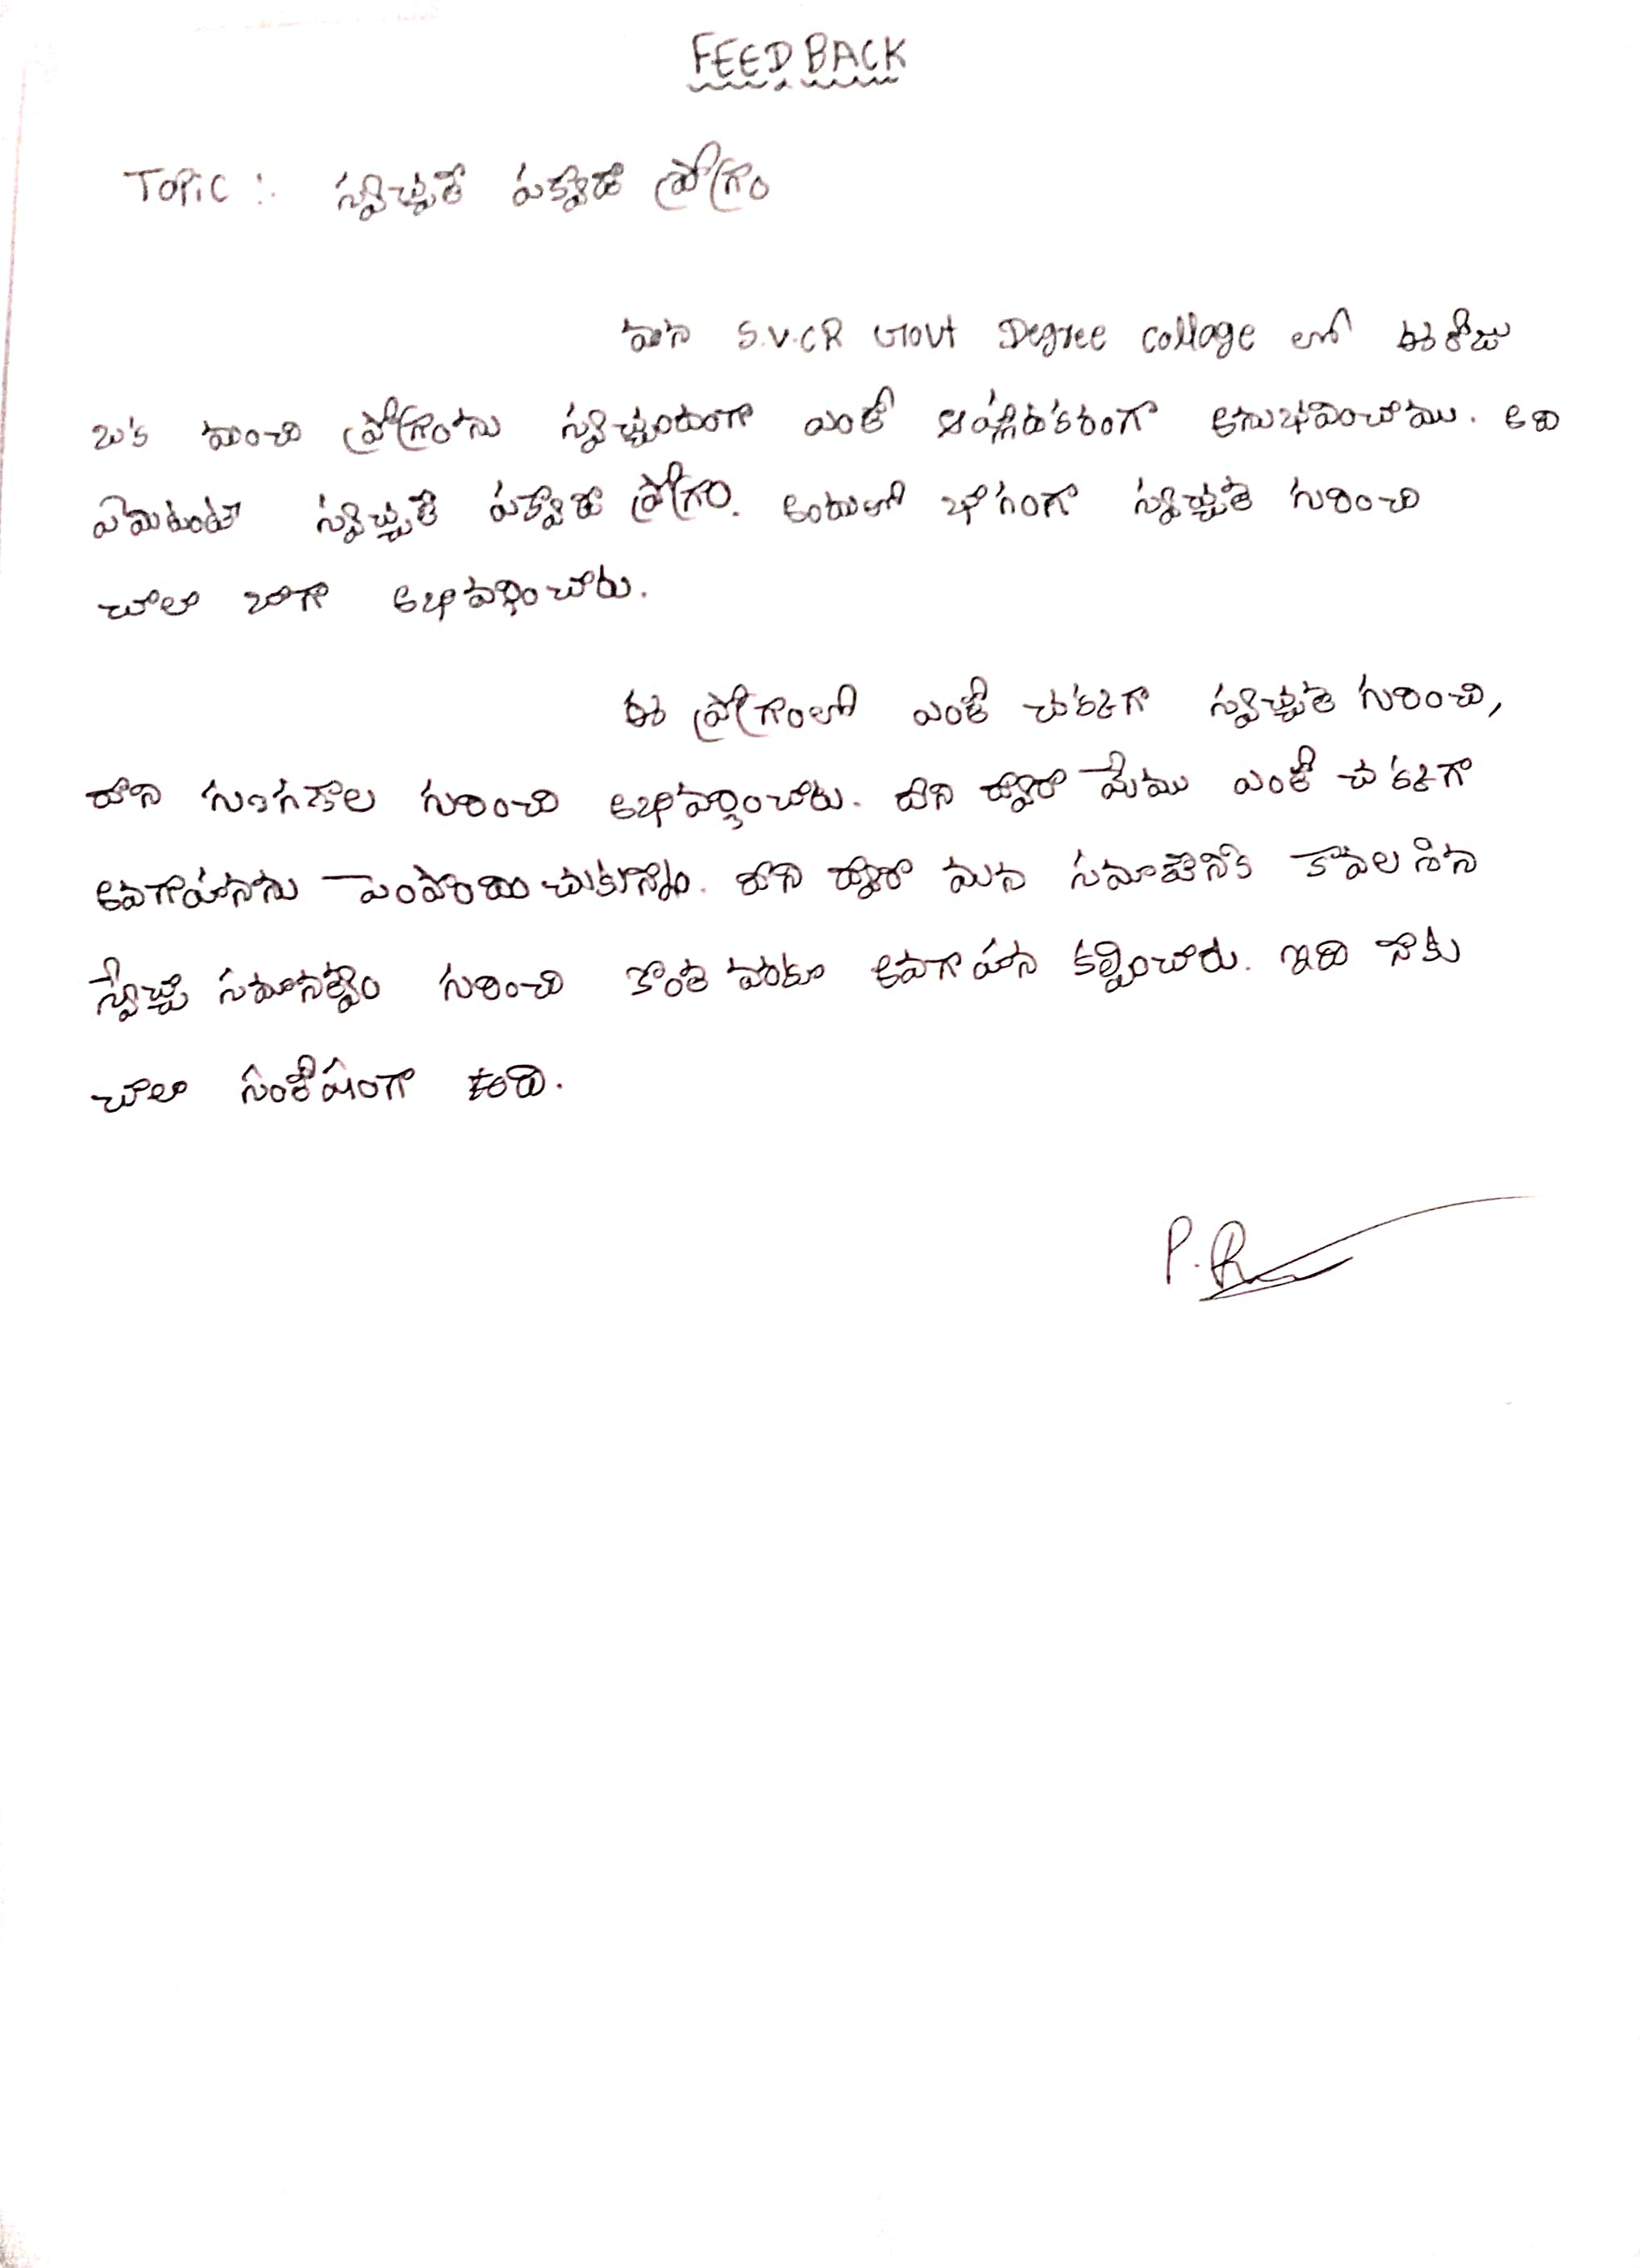 FEED BACK
Topic :- స్వచ్ఛతే పక్వాడా ప్రోగ్రాం
మన S.V.CR Govt Degree collage లో ఈ రోజు
ఒక మంచి ప్రోగ్రాంను స్వచ్ఛందంగా ఎంతో ఆహ్లదకరంగా అనుభవించాము. అది
ఏమిటంటా స్వచ్ఛతే పక్వాడా ప్రోగ్రాం. అందులో భాగంగా స్వచ్ఛత గురించి
చాలా బాగా అభివర్ణించారు.
ఈ ప్రోగ్రాంలో ఎంతో చక్కగా స్వచ్ఛత గురించి,
దాని గుణగణాల గురించి అభివర్ణించారు. దీని ద్వారా మేము ఎంతో చక్కగా
అవగాహనను పెంపొందించుకున్నాం. దాని ద్వారా మన సమాజానికి కావలసిన
స్వేచ్ఛా సమానత్వం గురించి కొంత వరకూ అవగాహన కల్పించారు. ఇది నాకు
చాలా సంతోషంగా ఉంది.